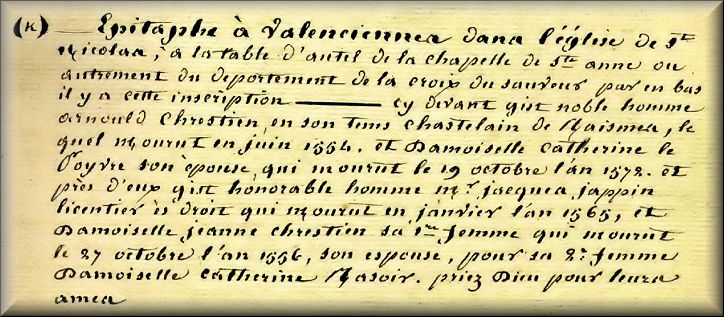 (K) — Epitaphe à Valenciennes dans l'église de St
Nicolas, à la table d'autel de la chapelle de Ste anne ou
autrement du departement de la croix du sauveur par en bas
il y a cette inscription ——— cy devant gist noble homme
arnould Chrestien, en son tems chastelain de Raismes, le
quel mourut en juin 1554. et Damoiselle Catherine le
Poyvre son épouse, qui mourut le 19 octobre l'an 1572. et
près d'eux gist honorable homme Mr. jacques jappin
licentier ès droit qui mourut en janvier l'an 1565, et
Damoiselle jeanne chrestien sa 1re femme qui mourut
le 27 octobre l'an 1556, son espouse, pour sa 2e. femme
Damoiselle Catherine Rasoir. priez Dieu pour leurs
ames